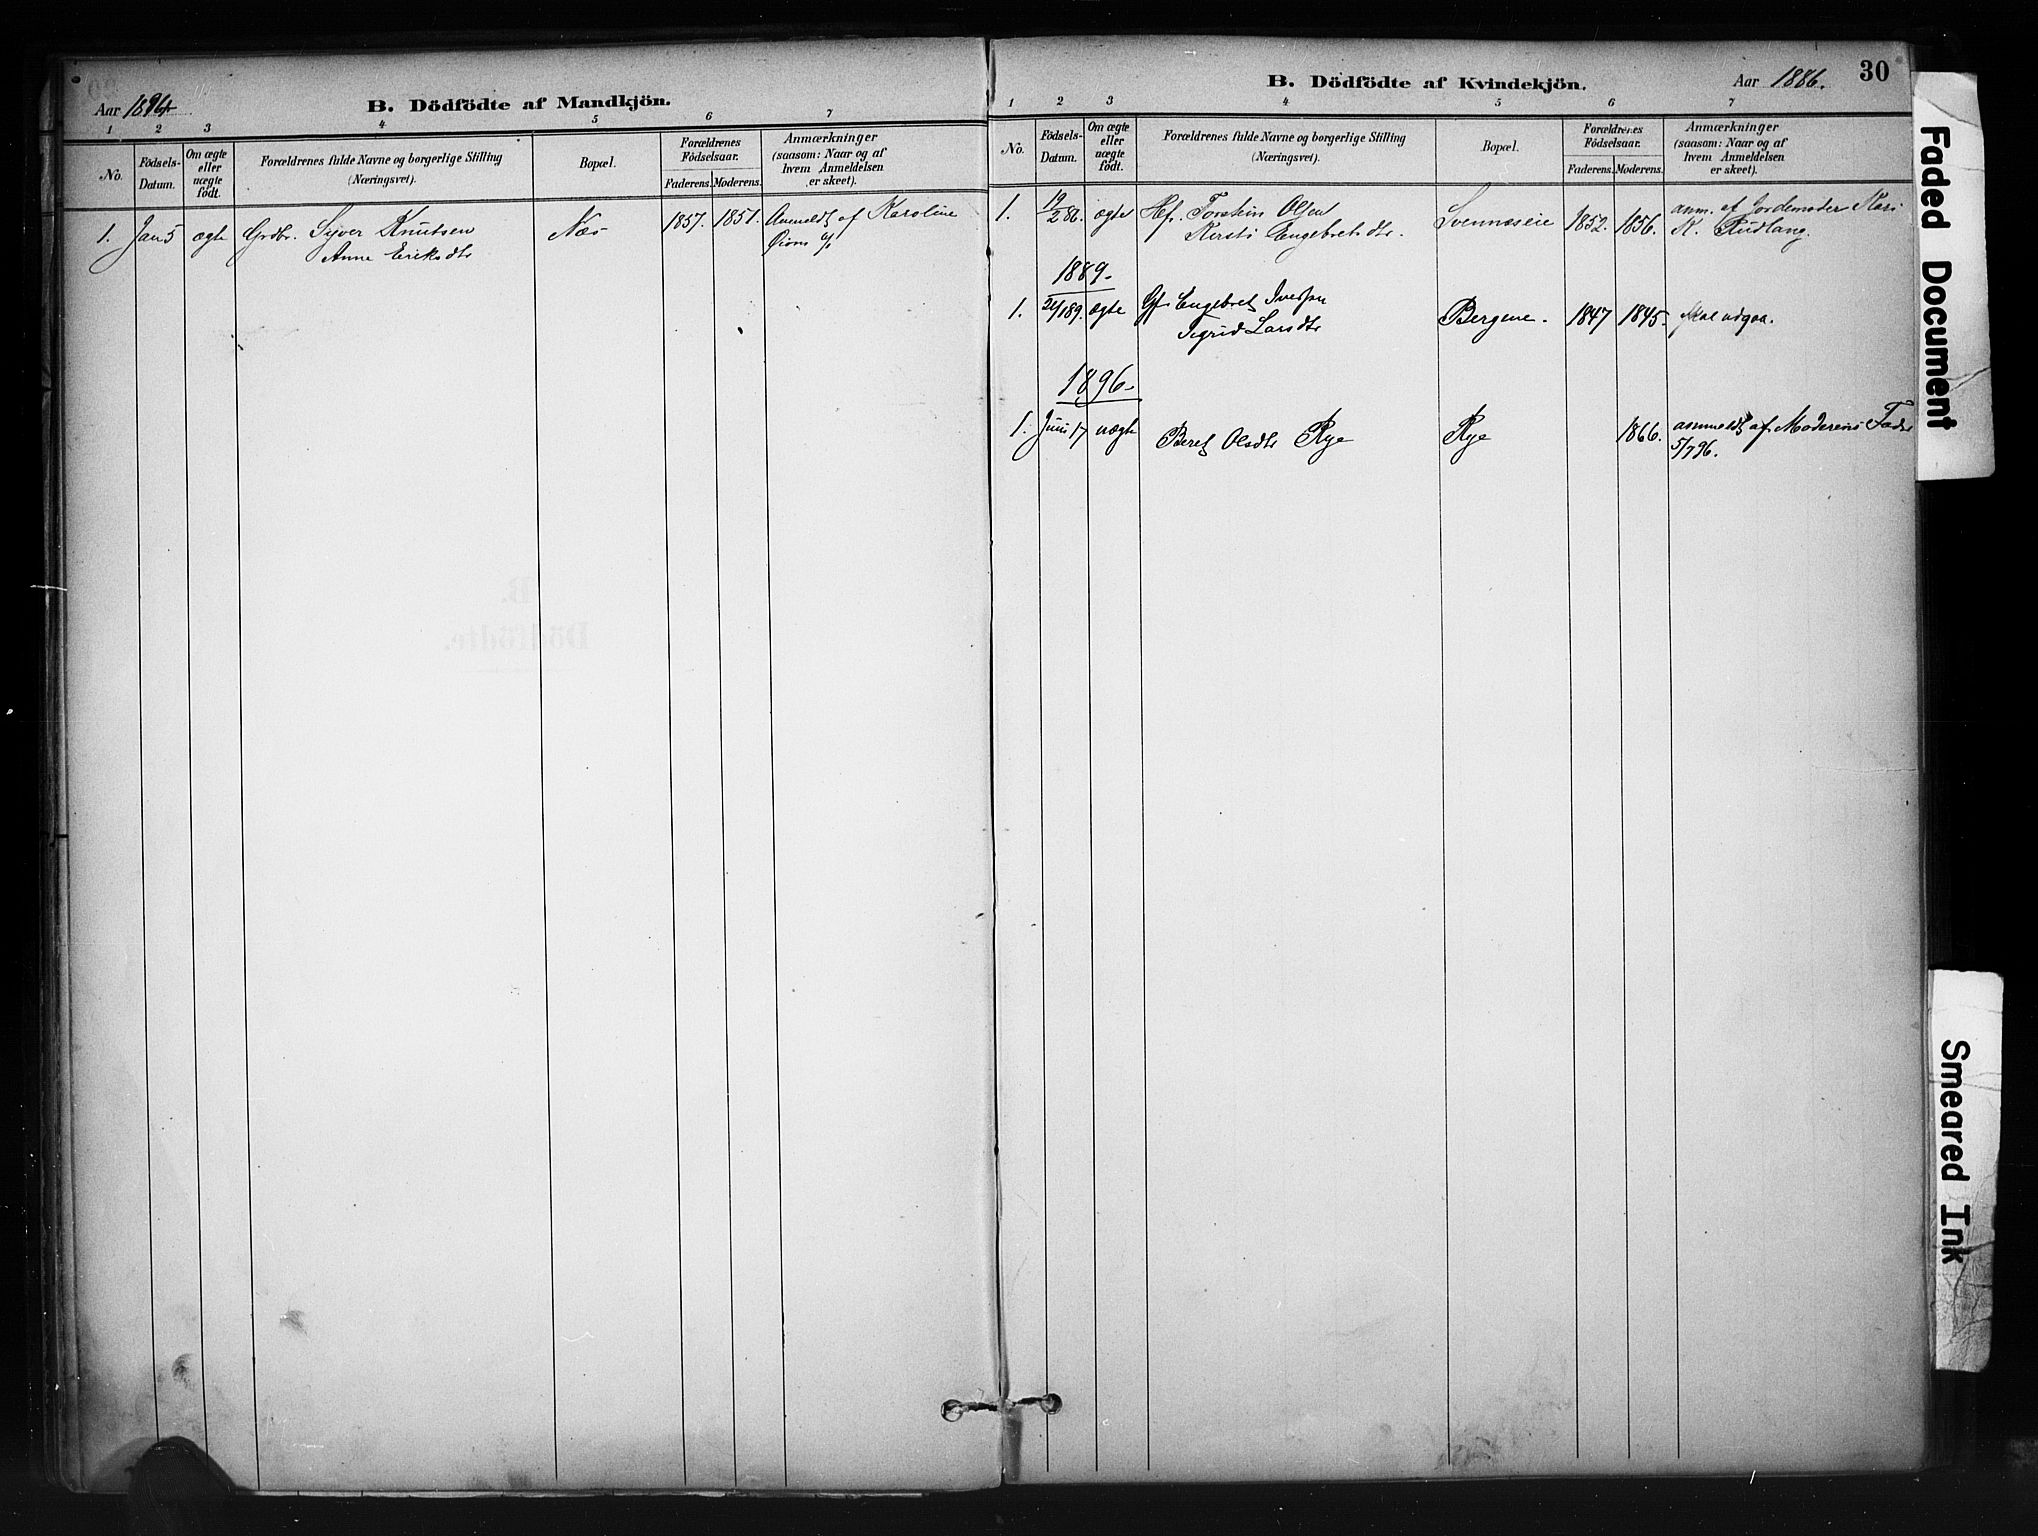 Aar 1894
B. Dödfödte af Mandkjön.
1 2 3 4 5 6 7
No. Födsels-Datum. Om ægte eller uægte födt. Forældrenes fulde Navne og borgerlige Stilling (Næringsvei). Bopæl. Forældrenes Födselsaar. Faderens. Moderens. Anmærkninger (saasom: Naar og af hvem Anmeldelsen er skeet).
1. Jan 5 ægte Grdbr. Syver Knutsen Næs 1857. 1851. Anmeldt af Karoline
Anne Eriksdtr
B.
Dödfödte.
B. Dödfödte af Kvindekjön.
Aar 1886.
30
1 2 3 4 5 6 7
No. Födsels-Datum. Om ægte eller uægte födt. Forældrenes fulde Navne og borgerlige Stilling (Næringsvei). Bopæl. Forældrenes Födselsaar. Faderens. Moderens. Anmærkninger (saasom: Naar og af hvem Anmeldelsen er skeet).
1. 19/2 86. ægte Hf. Torstein Olsen Svennæseie 1852. 1856. anm. af Jordemoder Kari
Kersti Engebretsdtr. K. Rudlang.
1889.
1. 24/1 89. ægte Gf. Engebret Iversen Bergene. 1847 1845. skal udgaa.
Sigrid Larsdtr
1896.
1. Juni 17 uægte Beret Olsdtr Rye Rye 1866. anmeldt af Moderens Fader
5/7 96.
Faded Document
Smeared Ink